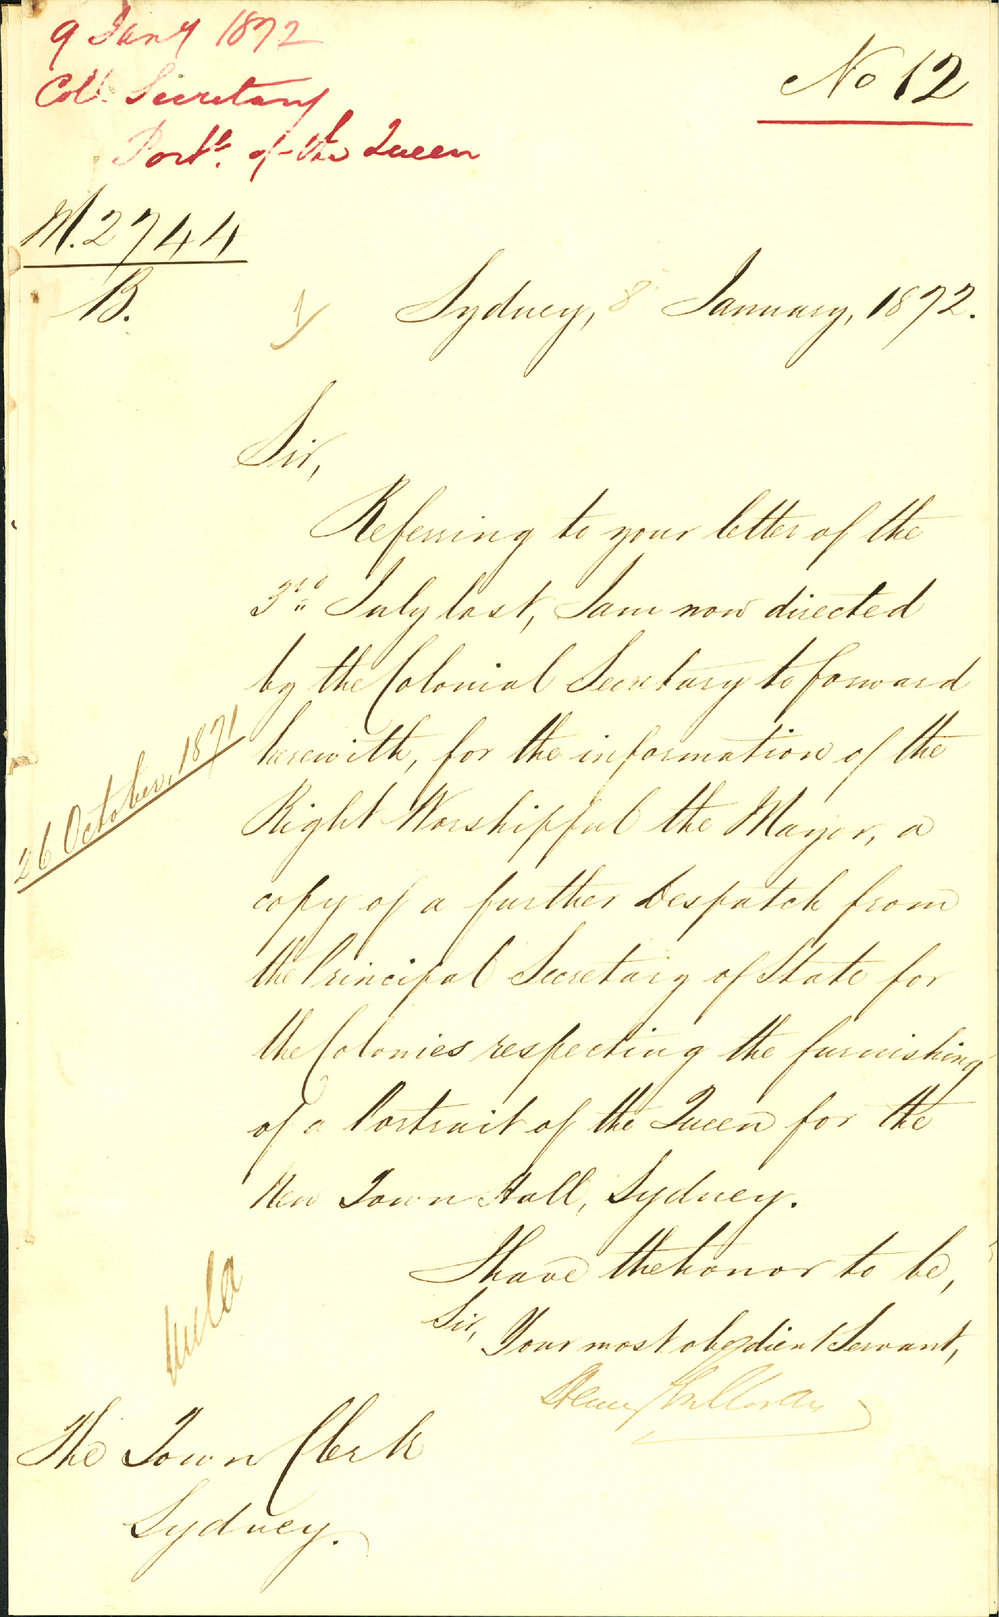 9 Jany 1872
Coll. Secretary
Portt. of the Queen
No 12
M.2744
B.
Sydney, 8 January, 1872.
Sir,
Referring to your letter of the
3rd July last, I am now directed
by the Colonial Secretary to forward
herewith, for the information of the
26 October, 1871
Right Worshipful the Mayor, a
copy of a further Despatch from
the Principal Secretary of State for
the Colonies respecting the furnishing
of a Portrait of the Queen for the
New Town Hall, Sydney.
I have the honor to be,
Sir,
Your most obedient Servant,
Henry Halloran
The Town Clerk
Sydney.